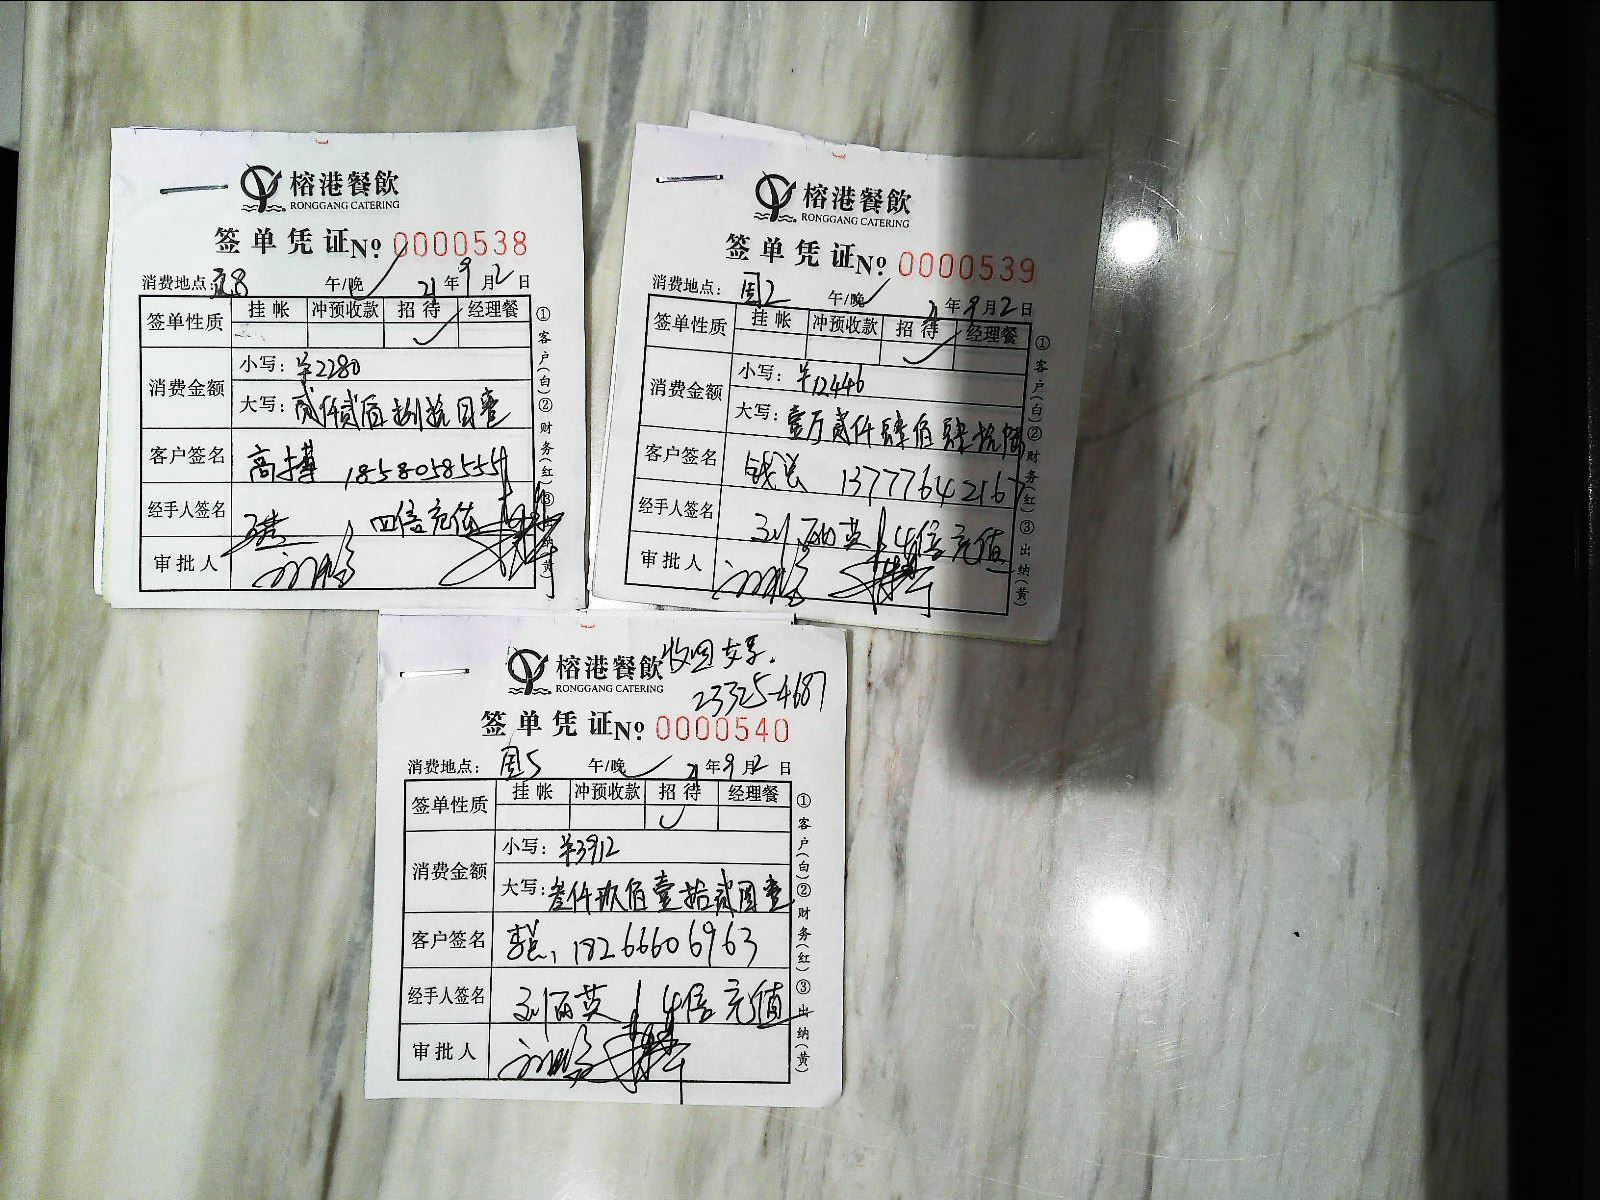 榕港餐飲
RONGGANG CATERING
签单凭证 No 0000538
消费地点: 午/晚 21年9月2日
签单性质 挂帐 冲预收款 招待 经理餐
消费金额 小写: ¥2280
大写: 贰仟贰佰捌拾圆整
客户签名 高搏 18580585554
经手人签名 四倍充值
审批人
①客户(白)②财务(红)③出纳(黄)
榕港餐飲
RONGGANG CATERING
签单凭证 No 0000539
消费地点: 周2 午/晚 21年9月2日
签单性质 挂帐 冲预收款 招待 经理餐
消费金额 小写: ¥12446
大写: 壹万贰仟肆佰肆拾陆
客户签名 钱总 13777642167
经手人签名 刘丽英 4倍充值
审批人
①客户(白)②财务(红)③出纳(黄)
收回
23325-4687
榕港餐飲
RONGGANG CATERING
签单凭证 No 0000540
消费地点: 周5 午/晚 21年9月2日
签单性质 挂帐 冲预收款 招待 经理餐
消费金额 小写: ¥3912
大写: 叁仟玖佰壹拾贰圆整
客户签名 李总, 18266606963
经手人签名 刘丽英 4倍充值
审批人
①客户(白)②财务(红)③出纳(黄)